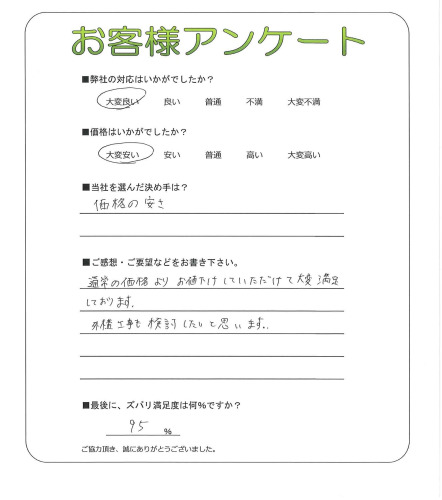 お客様アンケート
■弊社の対応はいかがでしたか？
大変良い 良い 普通 不満 大変不満
■価格はいかがでしたか？
大変安い 安い 普通 高い 大変高い
■当社を選んだ決め手は？
価格の安さ
■ご感想・ご要望などをお書き下さい。
通常の価格よりお値下げしていただけて大変満足
しております。
外構工事も検討したいと思います。
■最後に、ズバリ満足度は何％ですか？
95 ％
ご協力頂き、誠にありがとうございました。